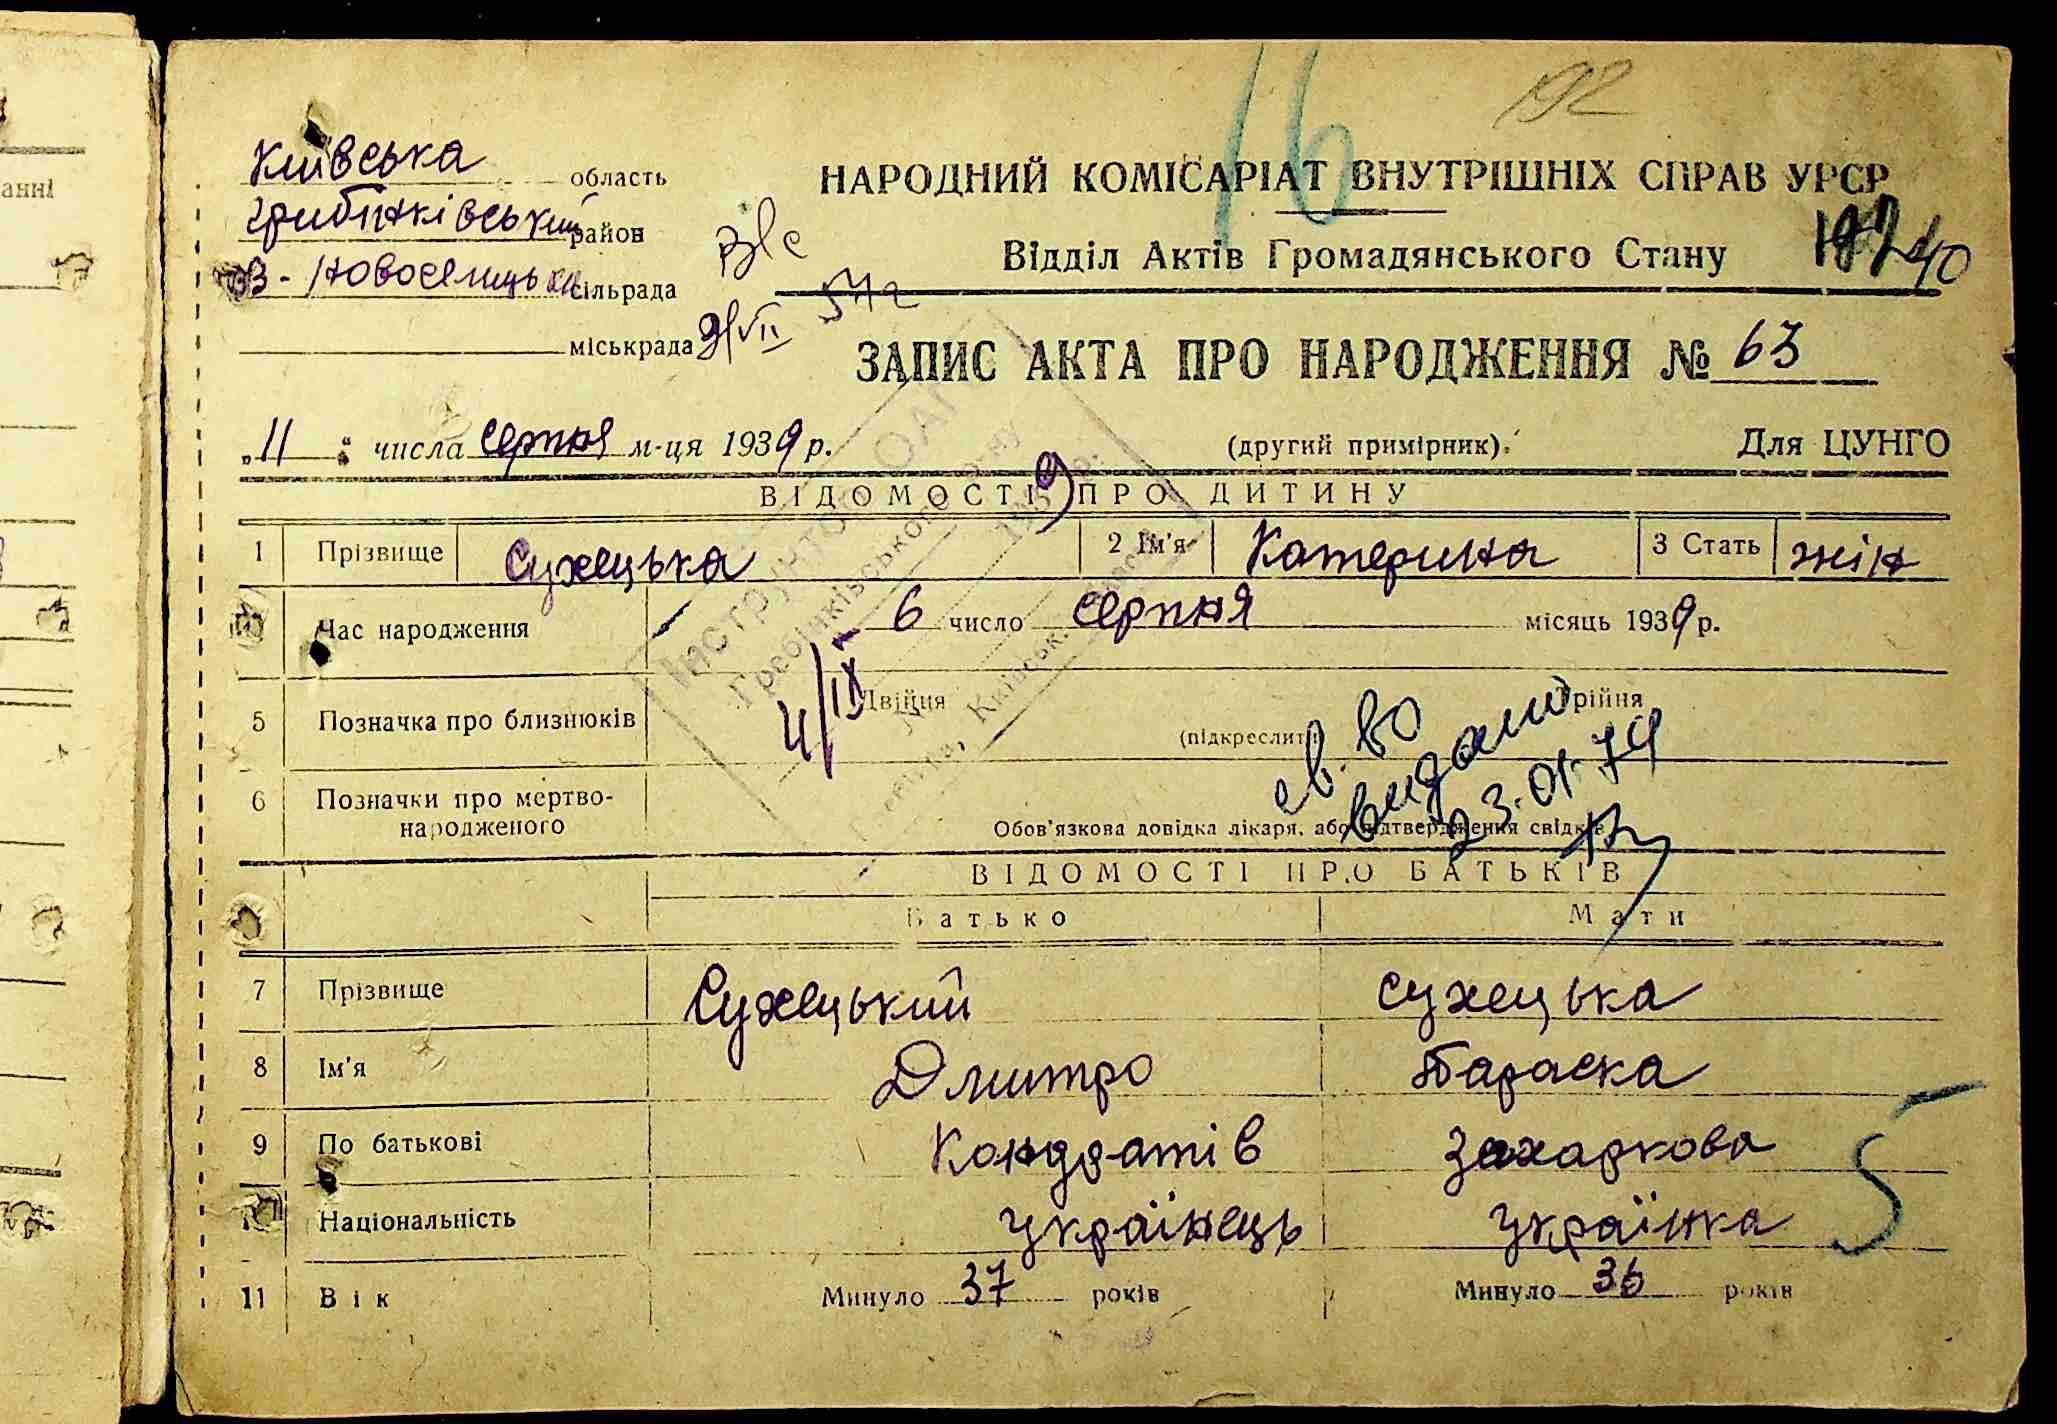 16
192
Київська область
Грибінківський район
В-Новоселицька сільрада
міськрада
НАРОДНИЙ КОМІСАРІАТ ВНУТРІШНІХ СПРАВ УРСР
Відділ Актів Громадянського Стану
40
ЗАПИС АКТА ПРО НАРОДЖЕННЯ № 63
„11“ числа серпня м-ця 1939 р.
(другий примірник).
Для ЦУНГО
ВІДОМОСТІ ПРО ДИТИНУ
1 Прізвище Сухецька 2 Ім'я Катерина 3 Стать жін
Час народження 6 число серпня місяць 1939 р.
4/IX
5 Позначка про близнюків Двійня Трійня
(підкреслити)
св. во
видано
23.01.74
6 Позначки про мертво-
народженого
Обов'язкова довідка лікаря, або підтвердження свідків
Інструктор ОАГС
Гребінківського
Київськ.
ВІДОМОСТІ ПРО БАТЬКІВ
Батько Мати
7 Прізвище Сухецький Сухецька
8 Ім'я Дмитро Параска
9 По батькові Кондратів Захаркова
Національність українець українка
11 Вік Минуло 37 років Минуло 36 років
5